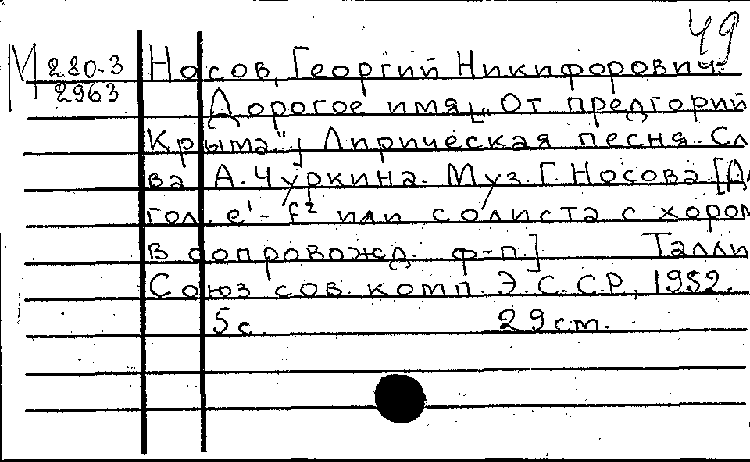 49
М 280-3 Носов, Георгий Никифорович.
2963 Дорогое имя [„От предгорий
Крыма"] Лирическая песня. Сл
ва А. Чуркина. Муз. Г. Носова [Дл
гол. e¹-f² или солиста с хором
в сопровожд. ф-п.] Талли
Союз сов. комп. Э.С.С.Р, 1952.
5 с. 29 ст.